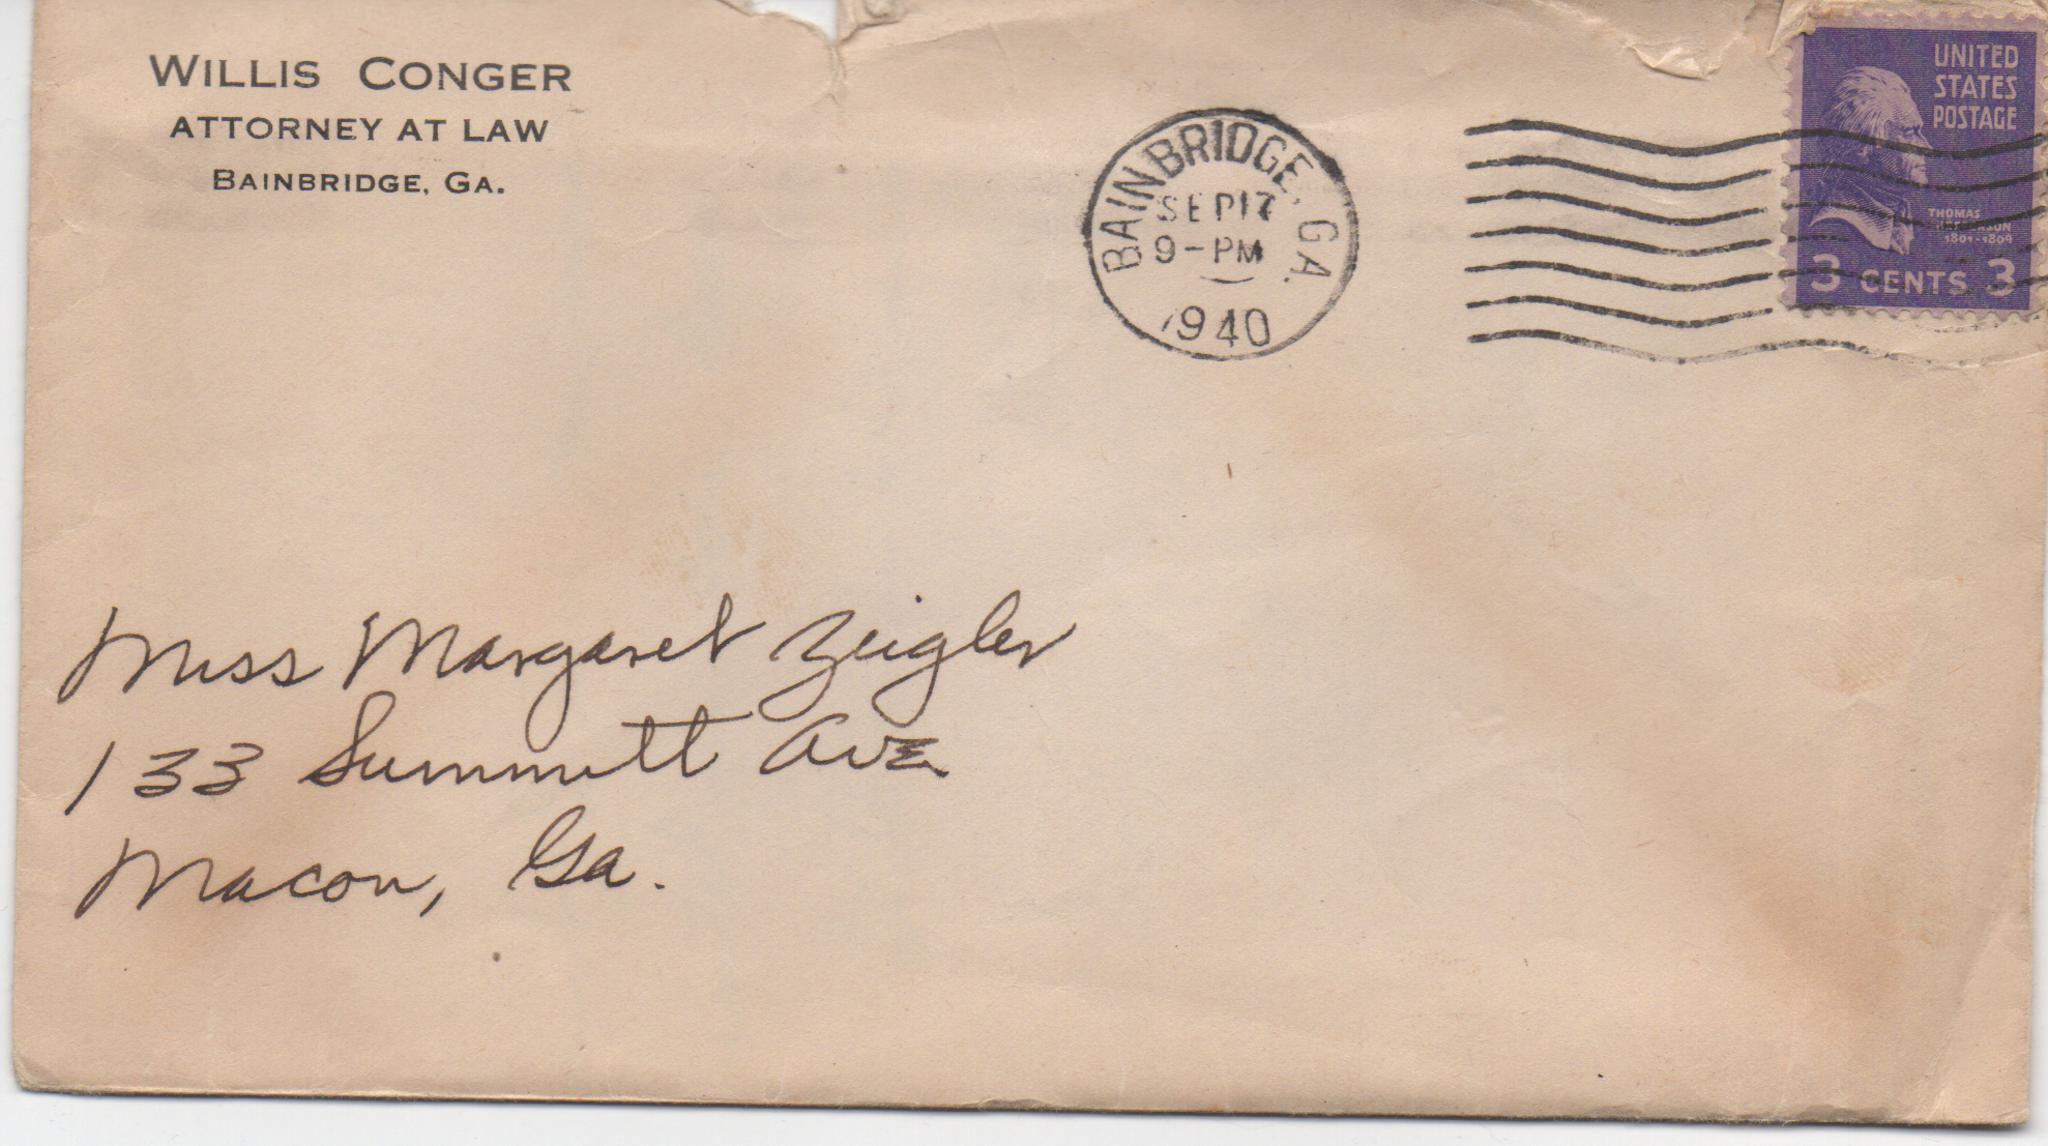 WILLIS CONGER
ATTORNEY AT LAW
BAINBRIDGE, GA.
BAINBRIDGE, GA.
SEP 17
9-PM
1940
UNITED
STATES
POSTAGE
THOMAS
JEFFERSON
1801-1809
3 CENTS 3
Miss Margaret Zeigler
133 Summitt Ave
Macon, Ga.